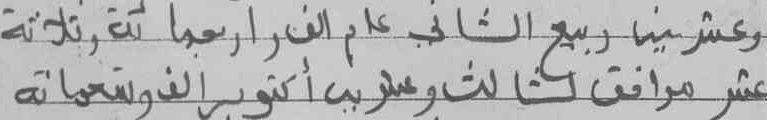 وعشرين ربيع الثاني عام الف واربعمائة وثلاثة
عشر موافق لثالث وعشرين أكتوبر الف وتسعمائة